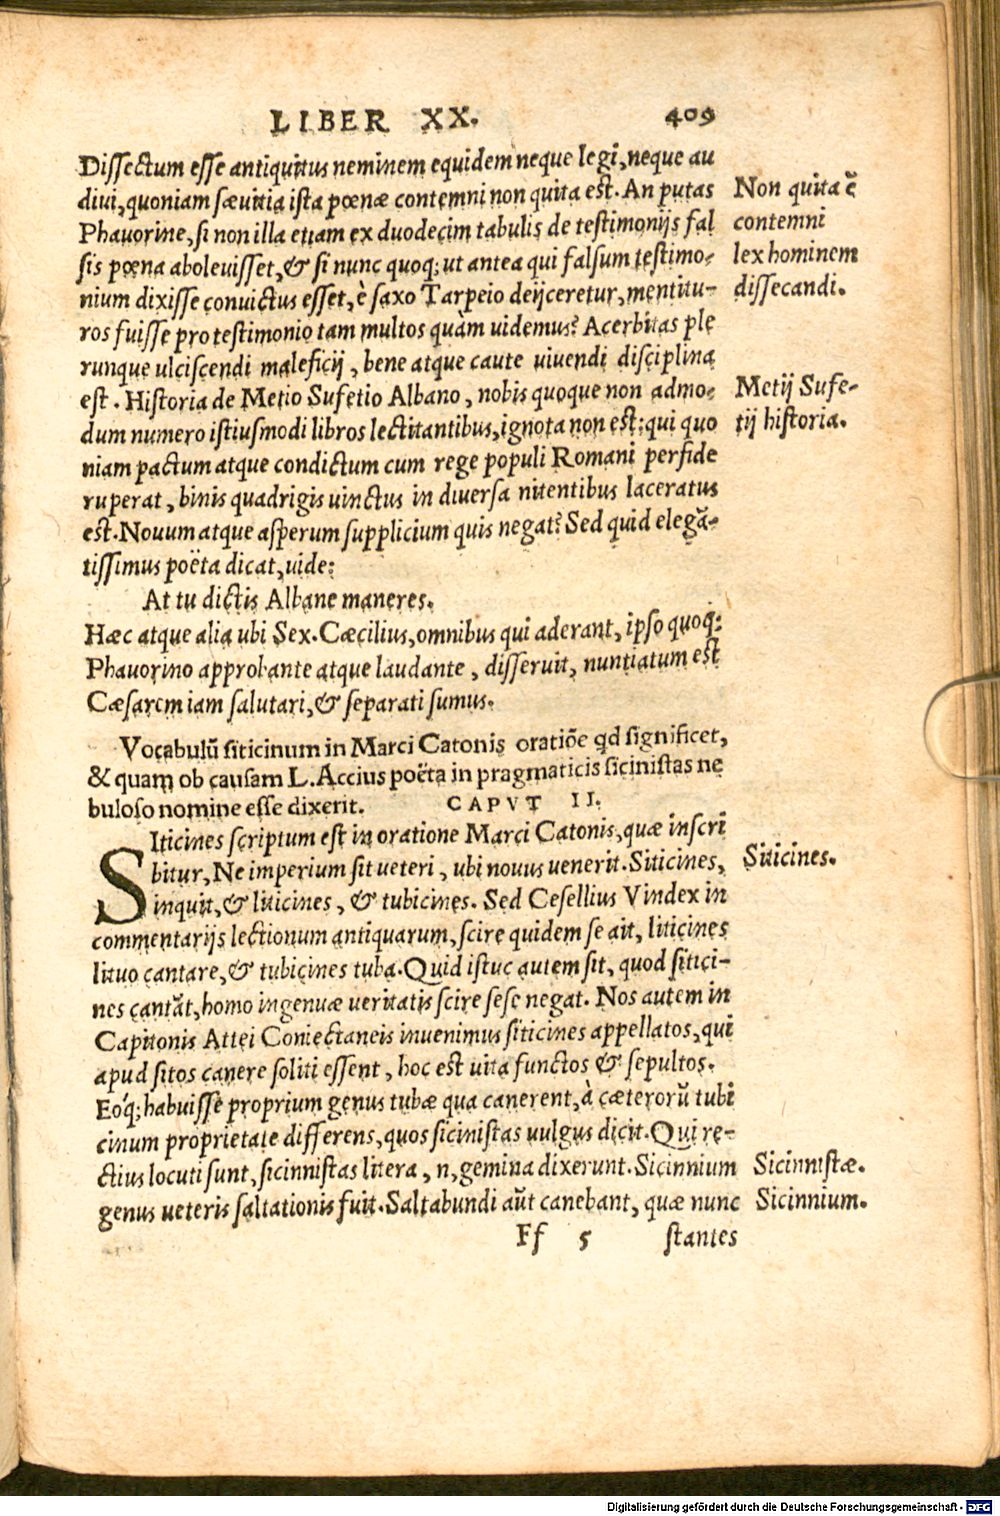 LIBER XX. 409
Dissectum esse antiquitus neminem equidem neque legi, neque au
divi, quoniam sævitia ista pœnæ contemni non quita est. An putas
Non quita ẽ
Phavorine, si non illa etiam ex duodecim tabulis de testimonijs fal
contemni
sis pœna abolevisset, & si nunc quoq; ut antea qui falsum testimo-
lex hominem
nium dixisse convictus esset, è saxo Tarpeio deijceretur, mentitu-
dissecandi.
ros fuisse pro testimonio tam multos quàm videmus? Acerbitas ple
runque ulciscendi maleficij, bene atque caute vivendi disciplina
est. Historia de Metio Sufetio Albano, nobis quoque non admo-
Metij Sufe-
dum numero istiusmodi libros lectitantibus, ignota non est: qui quo
tij historia.
niam pactum atque condictum cum rege populi Romani perfide
ruperat, binis quadrigis vinctus in diversa nitentibus laceratus
est. Novum atque asperum supplicium quis negat? Sed quid elegã-
tissimus poëta dicat, vide:
At tu dictis Albane maneres.
Hæc atque alia ubi Sex. Cæcilius, omnibus qui aderant, ipso quoq;
Phavorino approbante atque laudante, disseruit, nuntiatum est
Cæsarem iam salutari, & separati sumus.
Vocabulũ siticinum in Marci Catonis oratiõe qd significet,
& quam ob causam L. Accius poëta in pragmaticis sicinistas ne
buloso nomine esse dixerit. CAPVT II.
Siticines scriptum est in oratione Marci Catonis, quæ inscri
bitur, Ne imperium sit veteri, ubi novus venerit. Siticines,
Siticines.
inquit, & liticines, & tubicines. Sed Cesellius Vindex in
commentarijs lectionum antiquarum, scire quidem se ait, liticines
lituo cantare, & tubicines tuba. Quid istuc autem sit, quod sitici-
nes cantãt, homo ingenuæ veritatis scire sese negat. Nos autem in
Capitonis Attei Coniectaneis invenimus siticines appellatos, qui
apud sitos canere soliti essent, hoc est vita functos & sepultos.
Eoq́; habuisse proprium genus tubæ qua canerent, à cæterorũ tubi
cinum proprietate differens, quos sicinistas vulgus dicit. Qui re-
ctius locuti sunt, sicinnistas litera, n, gemina dixerunt. Sicinnium
Sicinnistæ.
genus veteris saltationis fuit. Saltabundi aũt canebant, quæ nunc
Sicinnium.
Ff 5 stantes
Digitalisierung gefördert durch die Deutsche Forschungsgemeinschaft - DFG